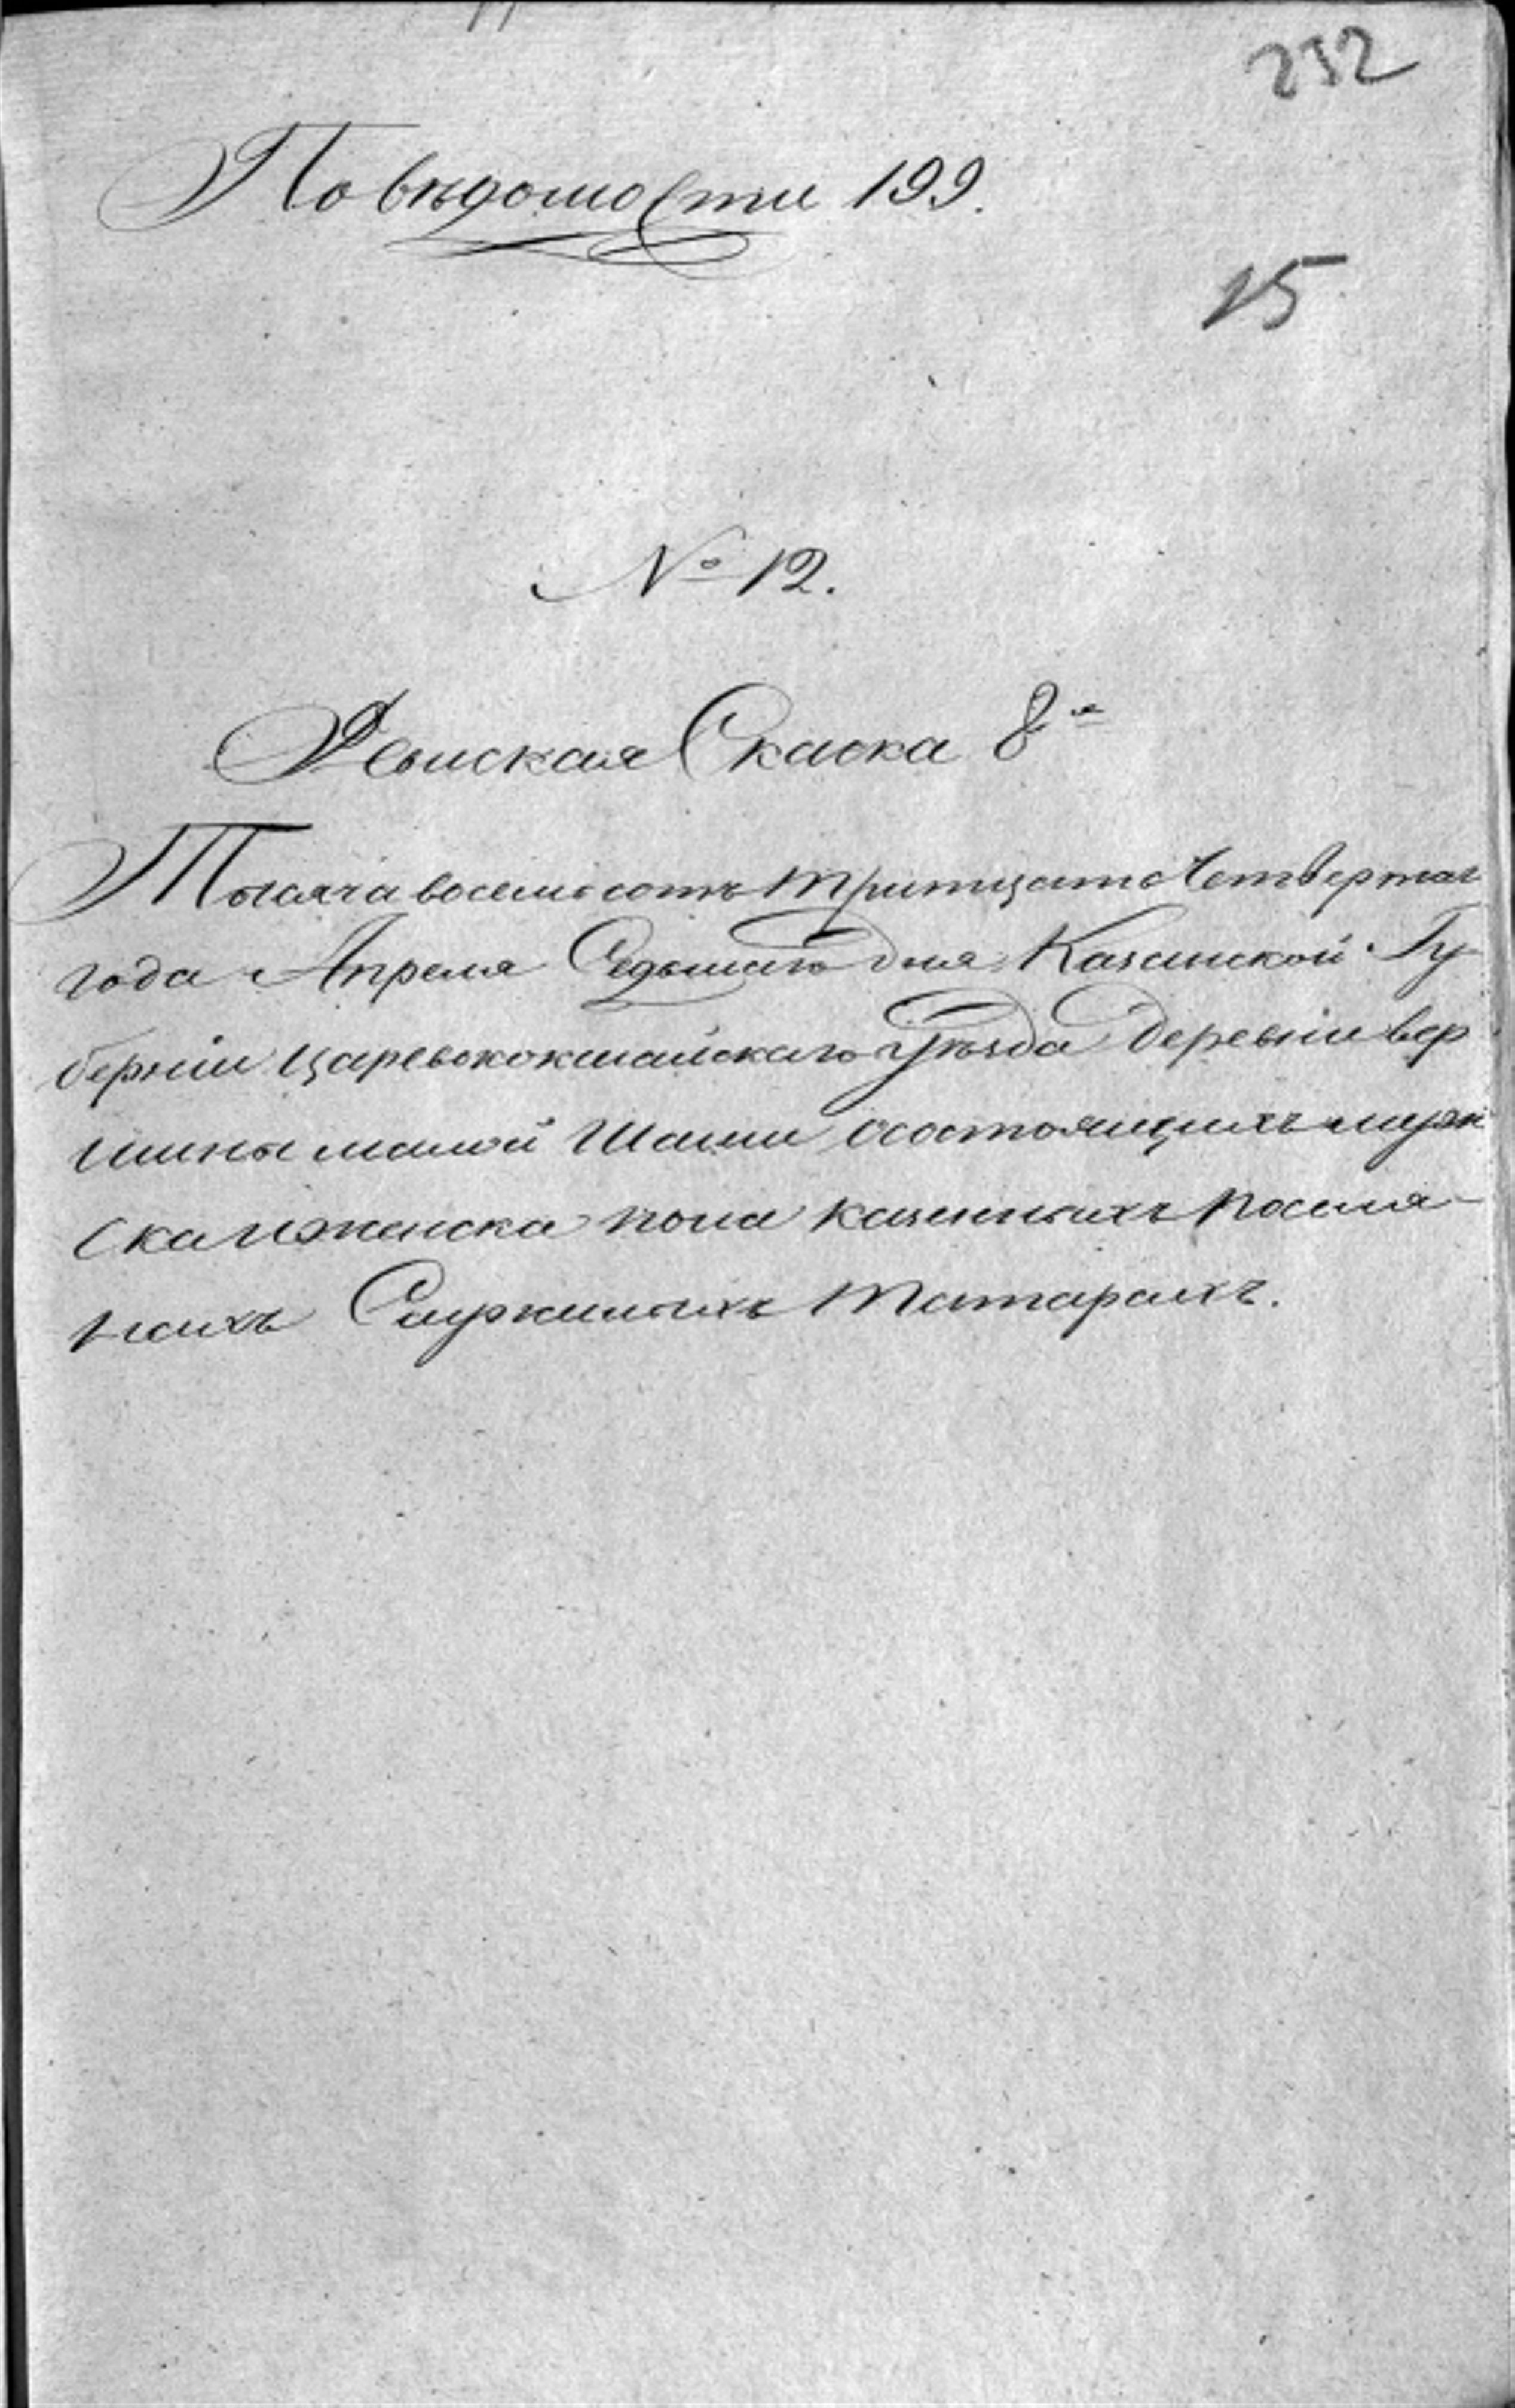 232
По вѣдомости 199.
15
№ 12.
Ревиская Скаска 8я
Тысяча восемьсотъ тритцать Четвертаг
года Апреля Седьмаго дня Казанской Гу
берніи царевококшайскаго уѣзда деревни вер
шины малой Шаши осостоящихъ мужи
ска иженска пола казенныхъ поселя-
нахъ Служилыхъ Татарахъ.